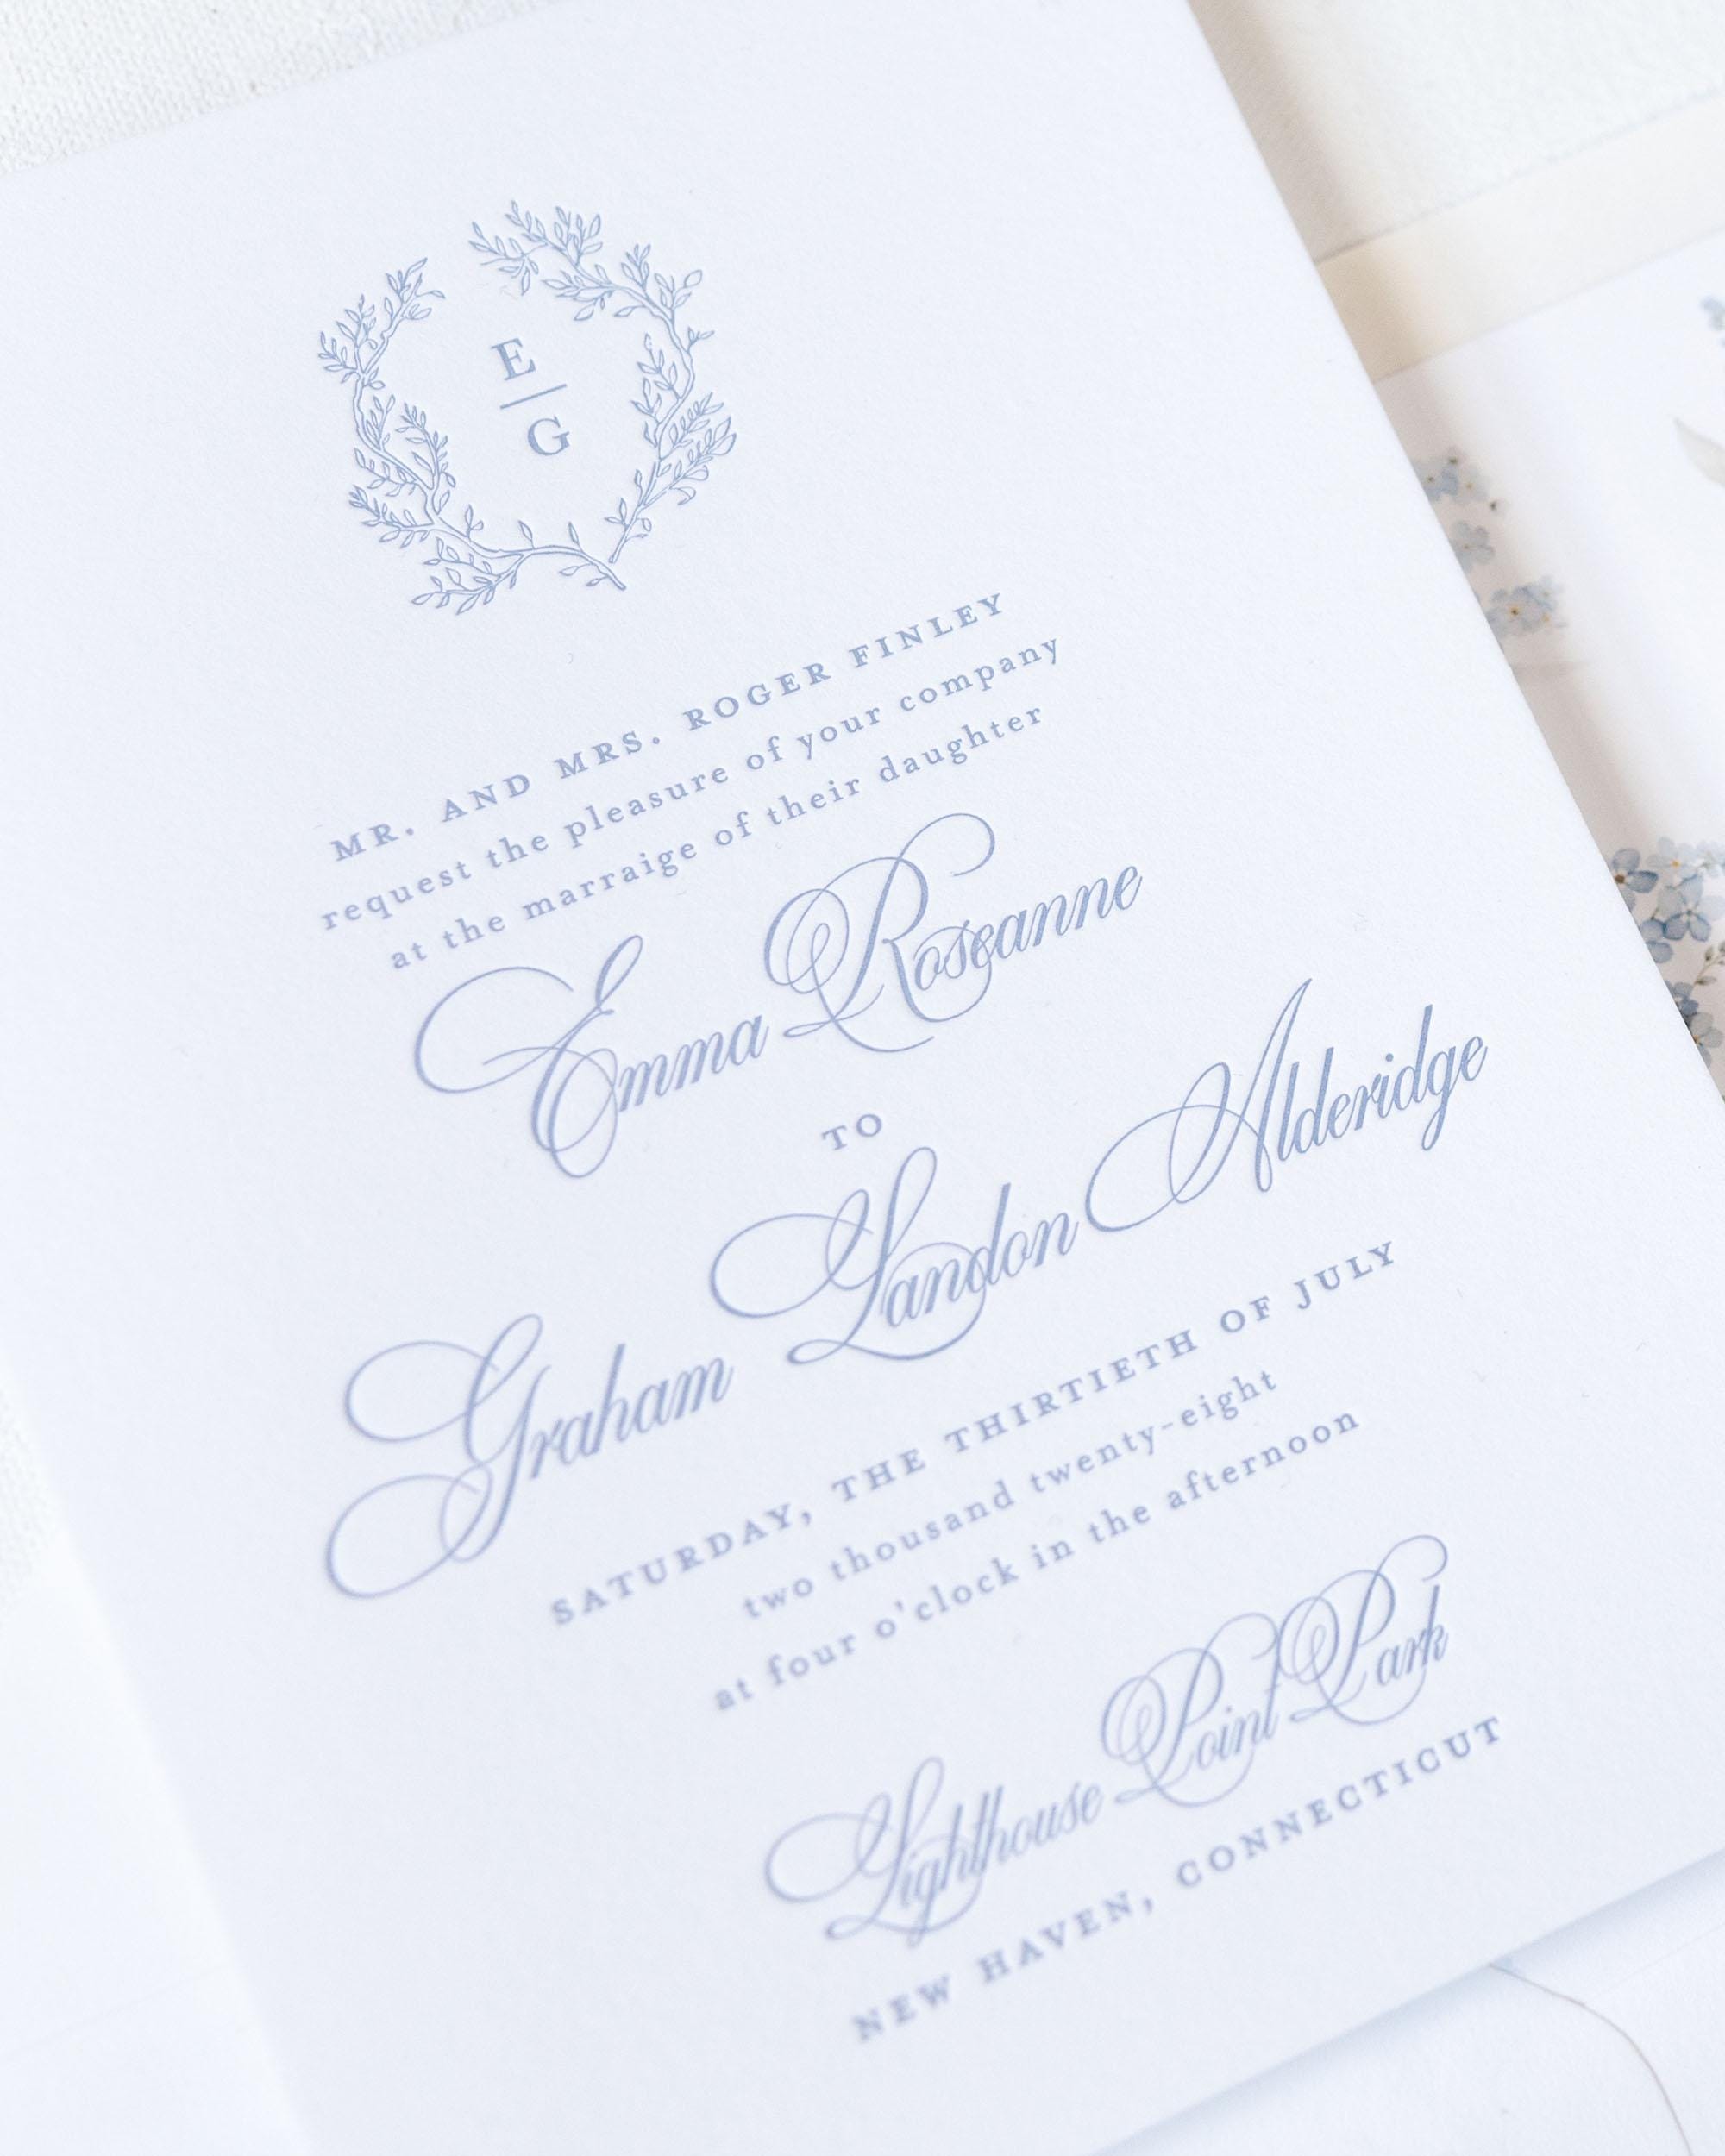 E
G
MR. AND MRS. ROGER FINLEY
request the pleasure of your company
at the marraige of their daughter
Emma Roseanne
TO
Graham Landon Alderidge
SATURDAY, THE THIRTIETH OF JULY
two thousand twenty-eight
at four o'clock in the afternoon
Lighthouse Point Park
NEW HAVEN, CONNECTICUT